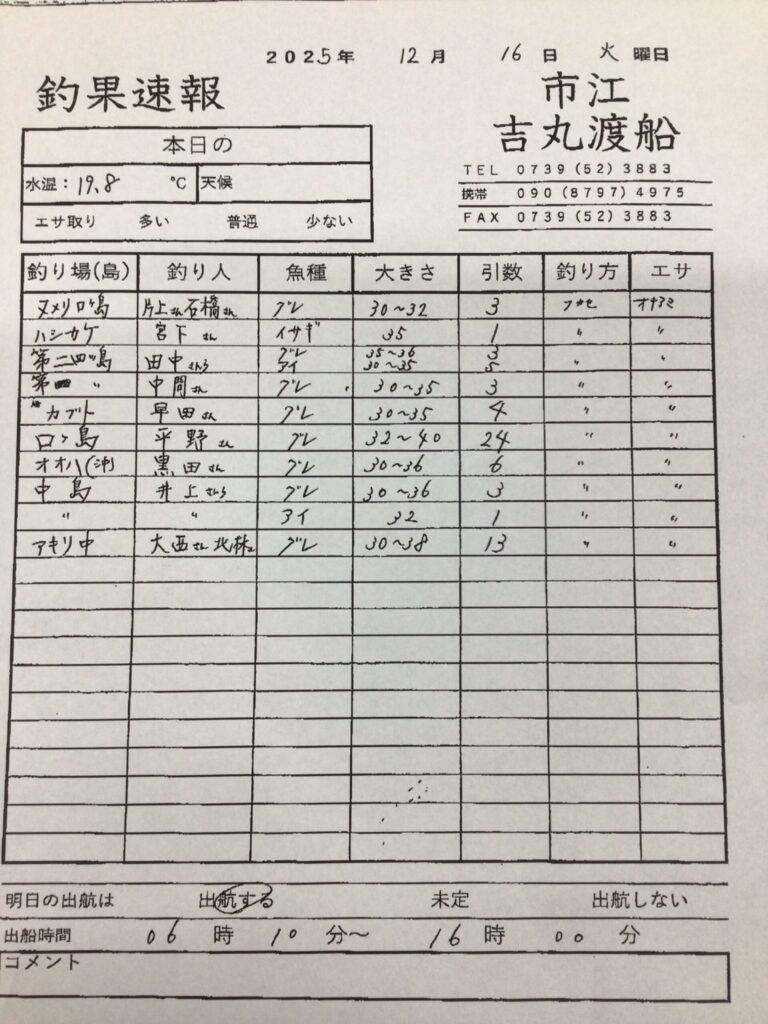 2025年 12月 16日 火曜日
釣果速報
市江
吉丸渡船
本日の
水温：19.8 ℃ 天候
エサ取り 多い 普通 少ない
TEL 0739(52)3883
携帯 090(8797)4975
FAX 0739(52)3883
釣り場(島) 釣り人 魚種 大きさ 引数 釣り方 エサ
ヌメリロ島 片上さん石橋さん グレ 30〜32 3 フカセ オキアミ
ハシカケ 宮下さん イサギ 35 1 〃 〃
第二四島 田中さんら グレ 35〜36 3 〃 〃
アイ 30〜35 5
第四 〃 中間さん グレ 30〜35 3 〃 〃
カブト 早田さん グレ 30〜35 4 〃 〃
口島 平野さん グレ 32〜40 24 〃 〃
オオハ(沖) 黒田さん グレ 30〜36 6 〃 〃
中島 井上さんら グレ 30〜36 3 〃 〃
〃 〃 アイ 32 1 〃 〃
アキリ中 大西さん北林 グレ 30〜38 13 〃 〃
明日の出航は 出航する 未定 出航しない
出船時間 06時10分〜16時00分
コメント